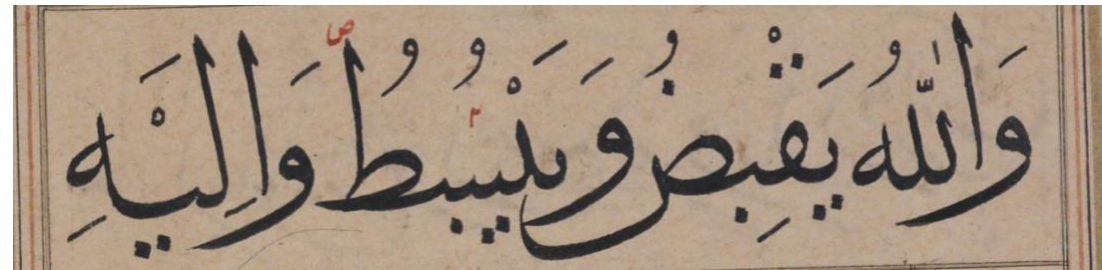 وَاللّٰهُ يَقْبِضُ وَيَبْسُطُ وَاِلَيْهِ